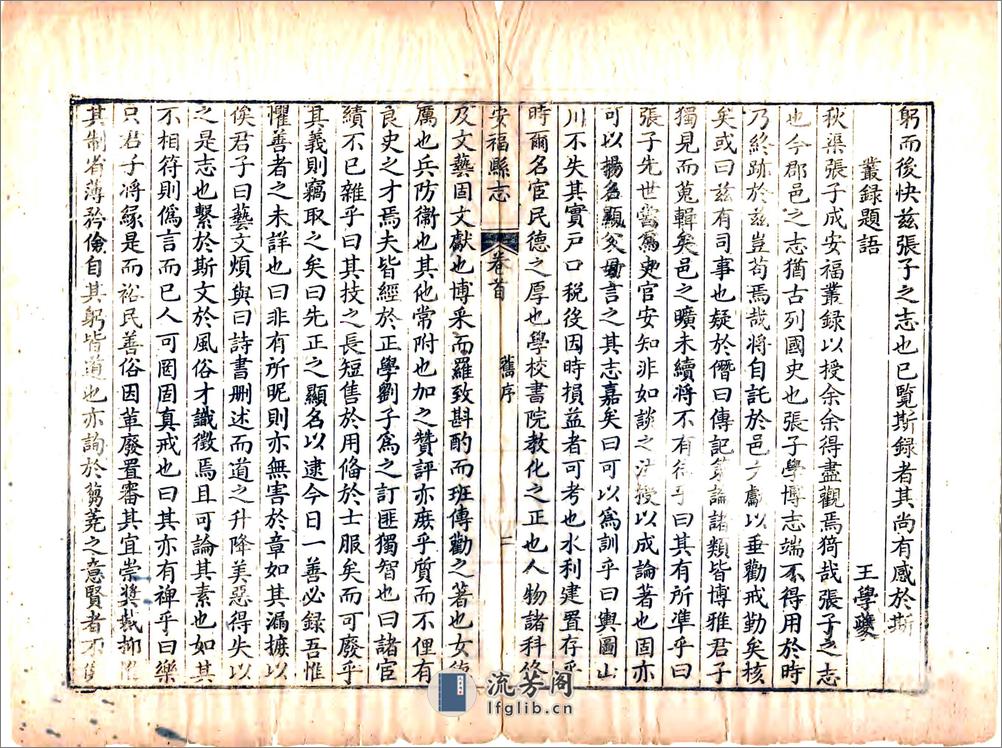 躬而後快茲張子之志也已覽斯録者其尚有感於斯
叢録題語
王學夔
秋渠張子成安福叢録以授余余得盡觀焉猗哉張子之志
也今郡邑之志猶古列國史也張子學博志端不得用於時
乃終跡於茲豈苟焉哉將自託於邑文獻以垂勸戒勤矣核
矣或曰茲有司事也疑於僭曰傳記論諸類皆博雅君子
獨見而蒐輯矣邑之曠未續將不有待乎曰其有所準乎曰
張子先世嘗為史官安知非如談之授以成論著也固亦
可以揚名顯父母言之其志嘉矣曰可以為訓乎曰輿圖山
川不失其實戸口稅役因時損益者可考也水利建置存乎
時爾名宦民德之厚也學校書院教化之正也人物諸科
安福縣志
卷首
舊序
二
及文藝固文獻也博采而羅致斟酌而班傳勸之著也女
厲也兵防衞也其他常附也加之贊評亦庶乎質而不俚有
良史之才焉夫皆經於正學劉子為之訂匪獨智也曰諸宦
績不已雜乎曰其技之長短售於用偹於士服矣而可廢乎
其義則竊取之矣曰先正之顯名以逮今日一善必録吾惟
懼善者之未詳也曰非有所昵則亦無害於章如其漏摭以
俟君子曰藝文煩與曰詩書刪述而道之升降美惡得失以
之是志也繫於斯文於風俗才識徵焉且可論其素也如其
不相符則僞言而已人可罔固真戒也曰其亦有裨乎曰樂
只君子將緣是而裕民善俗因革廢置審其宜崇奬裁抑
其制省薄矜儉自其躬皆道也亦詢於蒭蕘之意賢者不
流芳阁
lfglib.cn